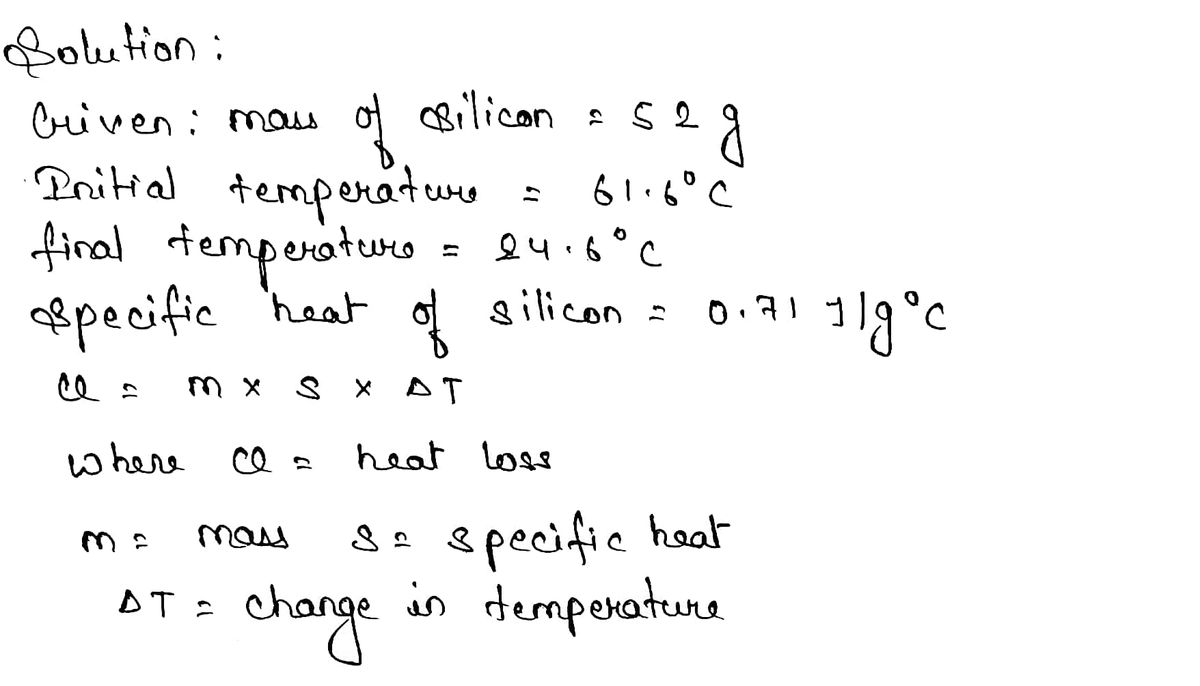 Solution :
Given : mass of silicon = 52 g
Initial temperature = 61.6°C
final temperature = 24.6°C
Specific heat of silicon = 0.71 J/g°C
Q = m × s × ΔT
where Q = heat loss
m = mass s = specific heat
ΔT = change in temperature